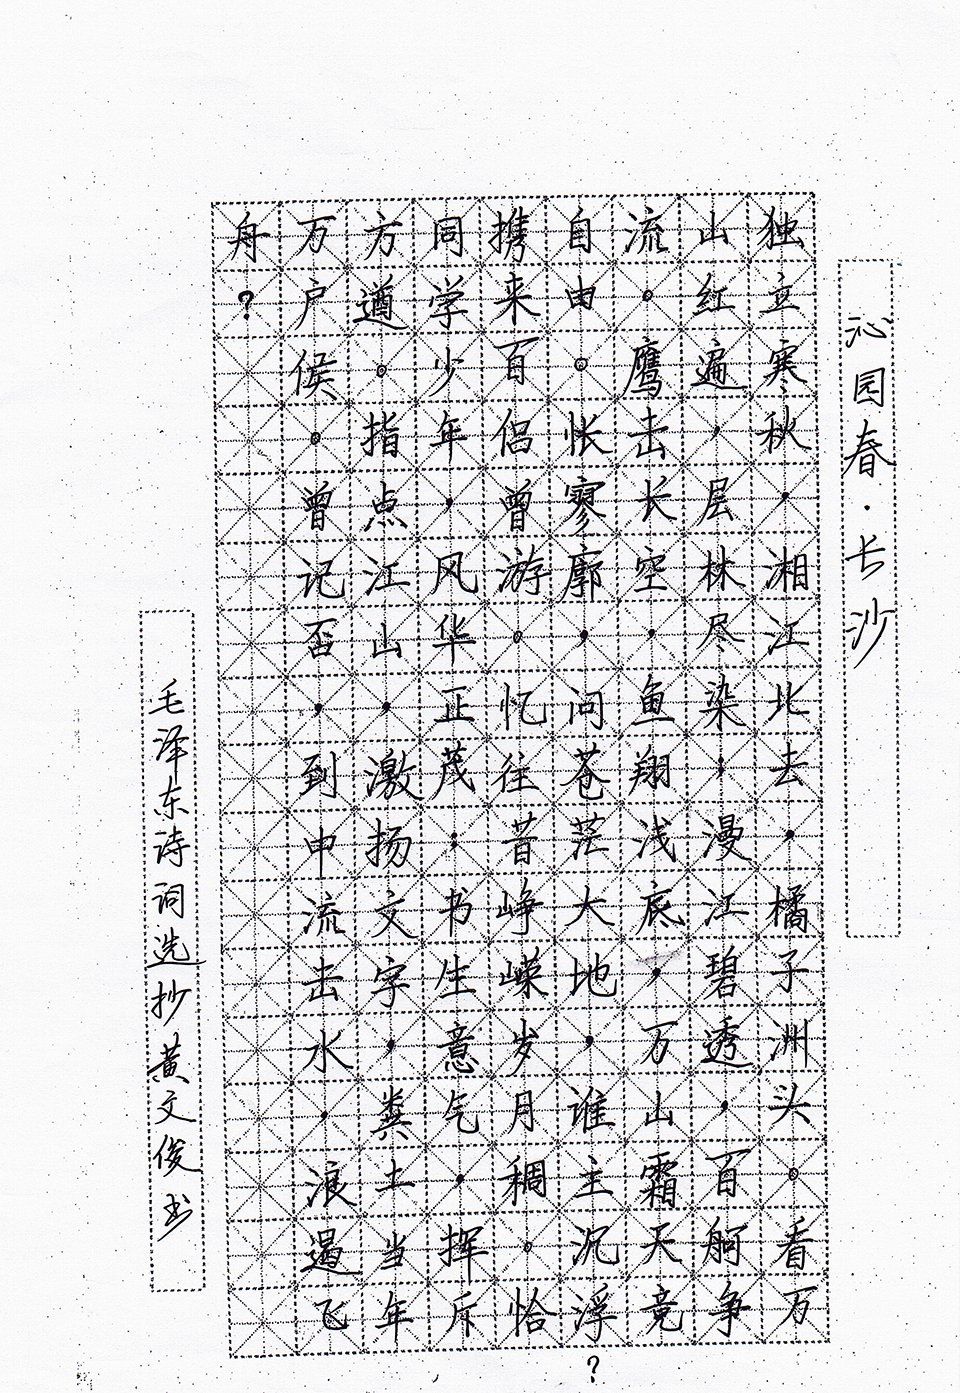 沁园春·长沙
独立寒秋，湘江北去，橘子洲头。看万
山红遍，层林尽染；漫江碧透，百舸争
流。鹰击长空，鱼翔浅底，万山霜天竞
自由。怅寥廓，问苍茫大地，谁主沉浮？
携来百侣曾游。忆往昔峥嵘岁月稠。恰
同学少年，风华正茂；书生意气，挥斥
方遒。指点江山，激扬文字，粪土当年
万户侯。曾记否，到中流击水，浪遏飞
舟？
毛泽东诗词选抄黄文俊书